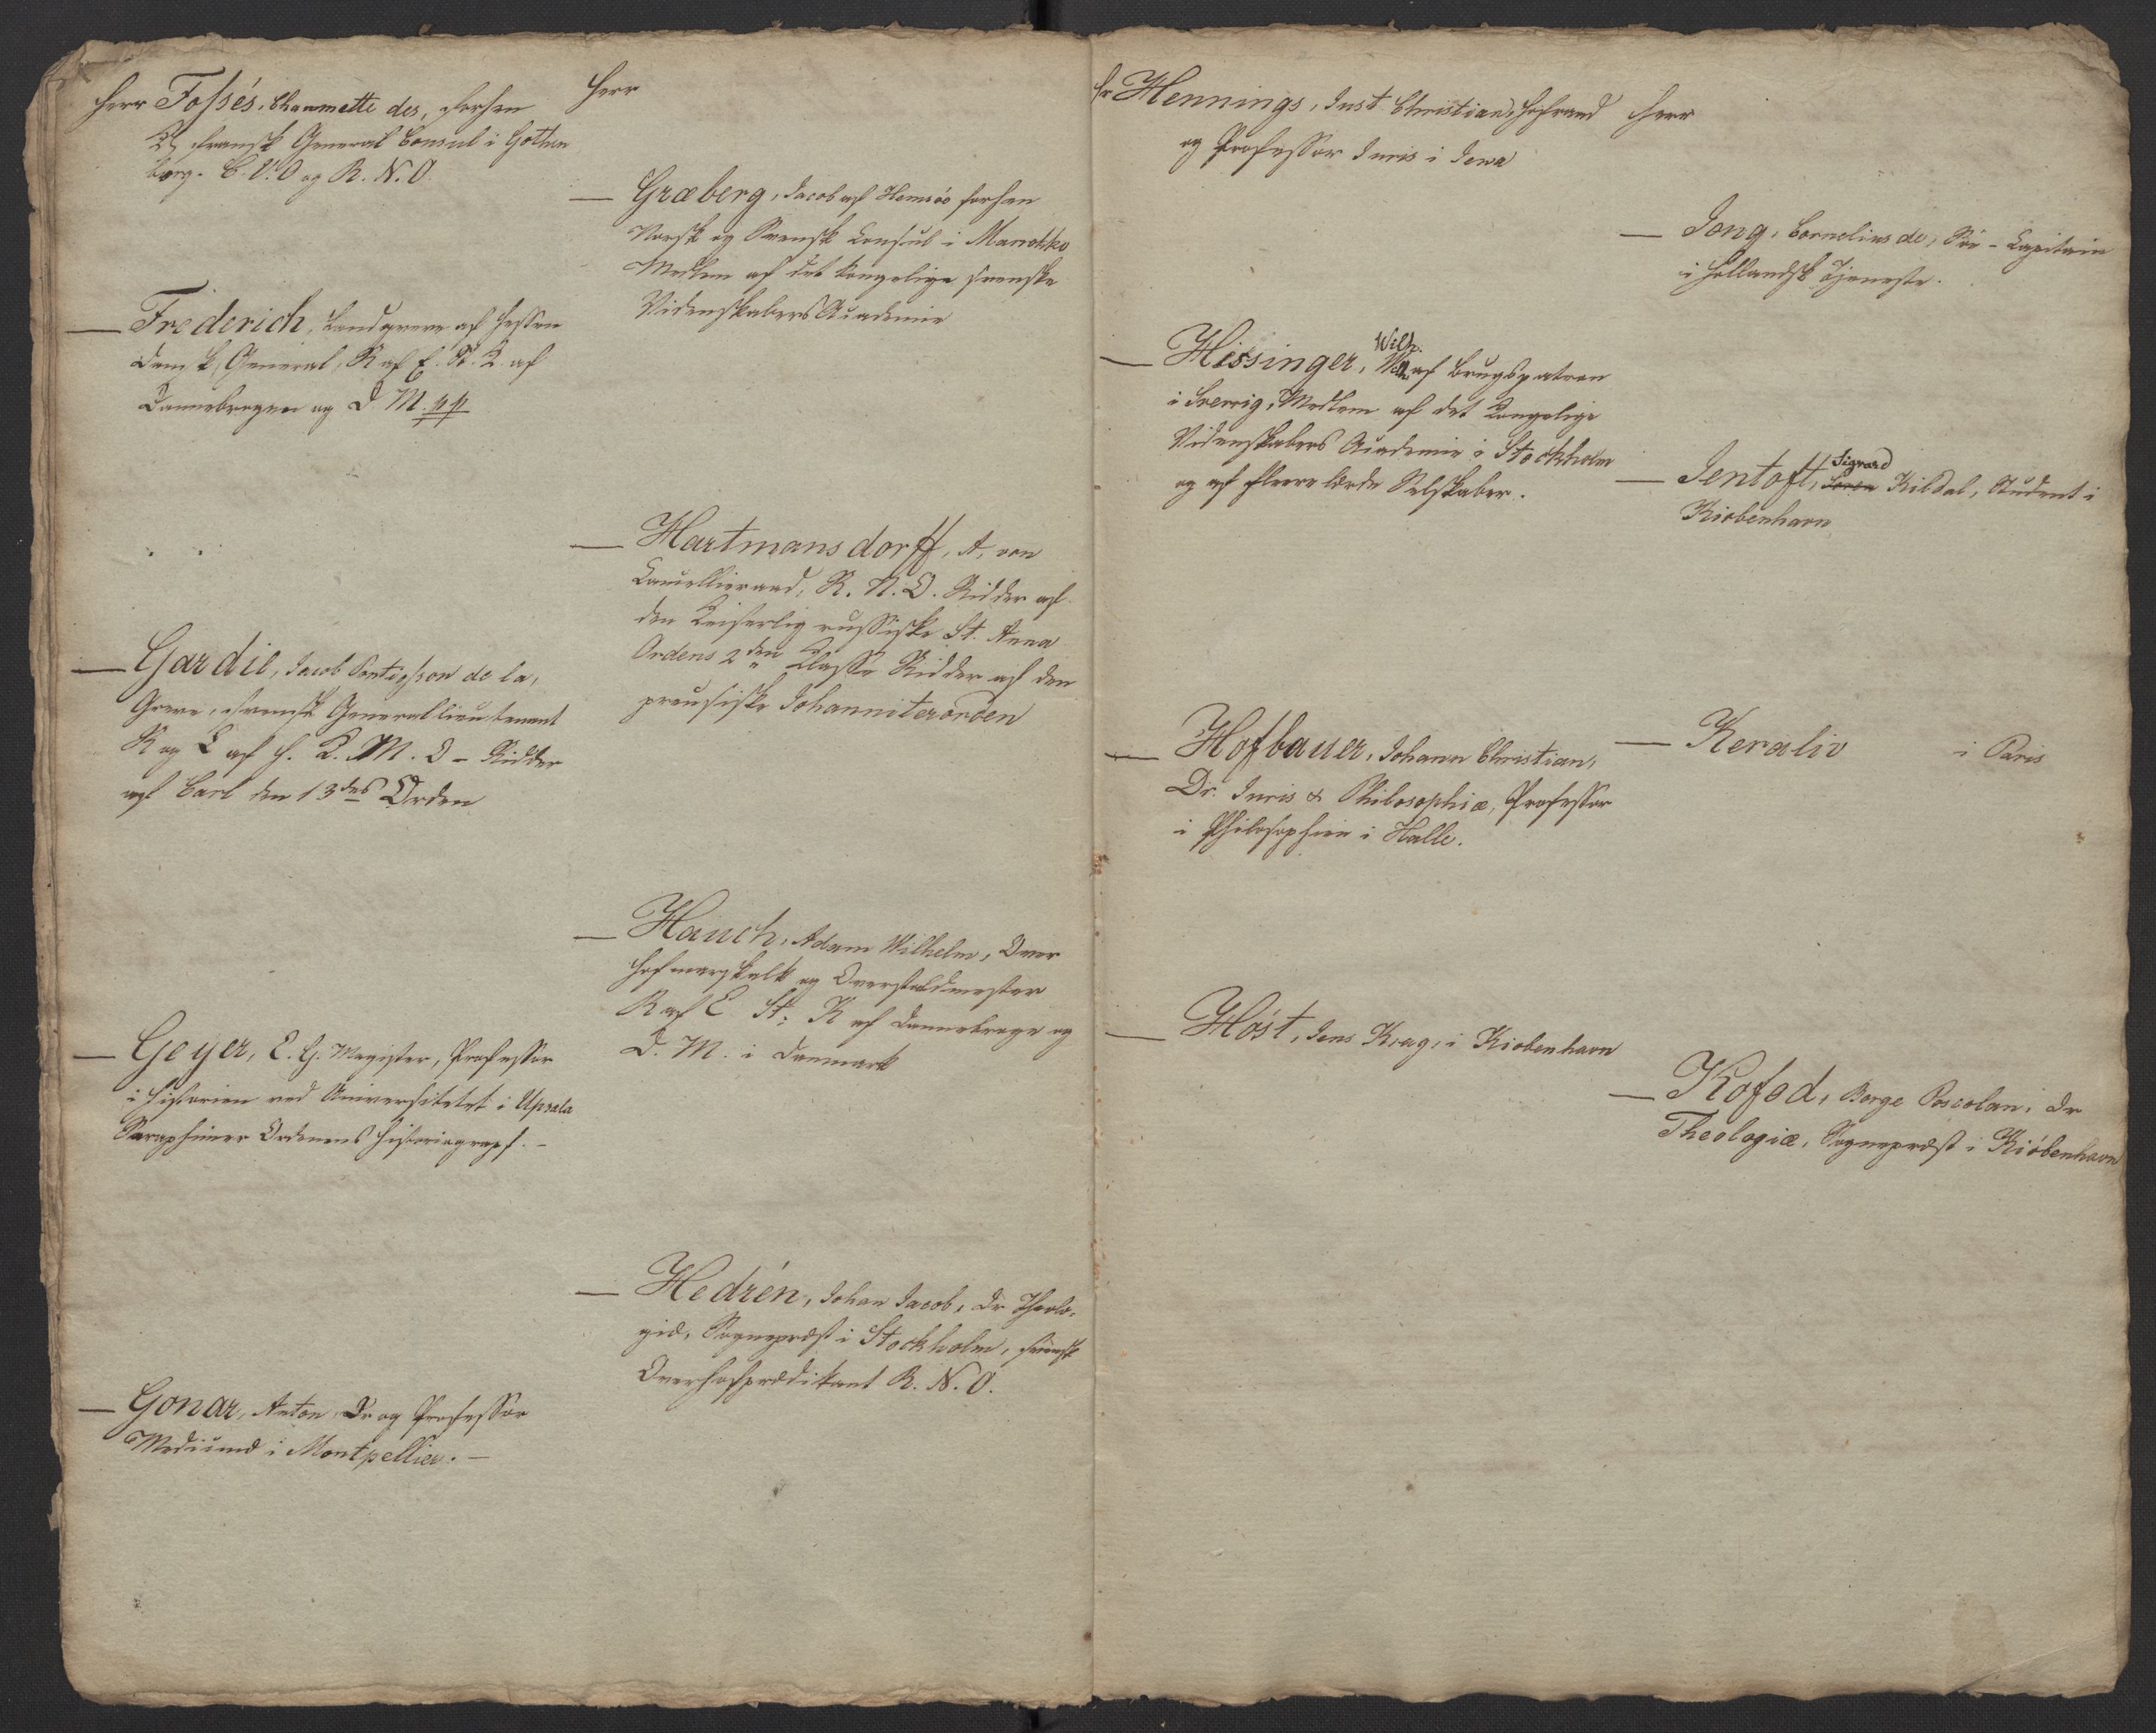 Herr Fossés, Chaumette des, forhen
fransk General Consul i Gothen
borg. C. V. O og R. N. O.
— Frederich, Landgreve af Hessen
Dansk General, R af E. St. K. af
Dannebrogen og D. M. pp
— Gardil, Jacob Pontusson de la,
Greve, svensk Generallieutenant
R og C af H. K. M. O – Ridder
af Carl den 13des Orden
— Geyer, E. G. Magister, Professor
i Historien ved Universitetet i Upsala
Seraphimer Ordenens Historiograph. –
— Gonar, Anton, Dr og Professor
Medicinæ i Montpellier. –
Herr
— Græberg, Jacob af Hemsöe forhen
Norsk og Svensk Consul i Marokko
Medlem af det kongelige svenske
Videnskabers Academie
— Hartmansdorff, A. von
Cancellieraad, R. N. O. Ridder af
den Keiserlig russiske St. Anna
Ordens 2den Classe Ridder af den
preusiske Johanniterorden
— Hauch, Adam Wilhelm, Over
Hofmarskalk og Overstaldmester
R af E. St: K af Dannebroge og
D. M. i Danmark
— Hedrén, Johan Jacob, Dr Theolo-
giæ, Sognepræst i Stockholm, svensk
Overhofprædikant R. N. O.
Hr Hennings, Just. Christian, Hofraad
og Professor Juris i Jena
— Hissinger, Wilh. af Brugspatron
i Sverrig, Medlem af det Kongelige
Videnskabers Academie i Stockholm
og af flere lærde Selskaber.
— Hofbauer, Johann Christian,
Dr. Juris & Philosophiæ, Professor
i Philosophien i Halle.
— Höst, Jens Krag, i Kiobenhavn
Herr
— Jong, Cornelius de, Söe-Capitain
i Hollandsk Tjeneste.
— Jentoft, Sigvard Kildal, Student i
Kiobenhavn
— Keraliv i Paris
— Kofod, Borge Poscolan, Dr
Theologiæ, Sognepræst i Kiöbenhavn